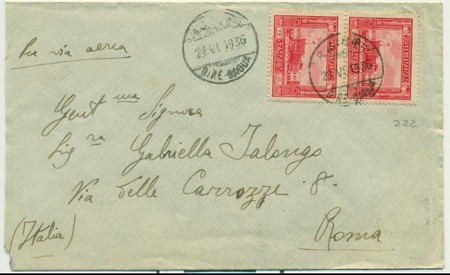 Per via aerea
24 VI 1936
DIRE-DAOUA
222
Gent.ma Signora
Sig.ra Gabriella Jalongo
Via delle Carrozze 8.
Roma
(Italia)